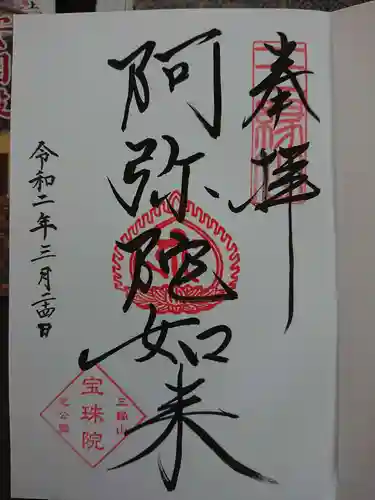 奉拝
阿弥陀如来
令和二年三月二十四日
三縁山
宝珠院
芝公園